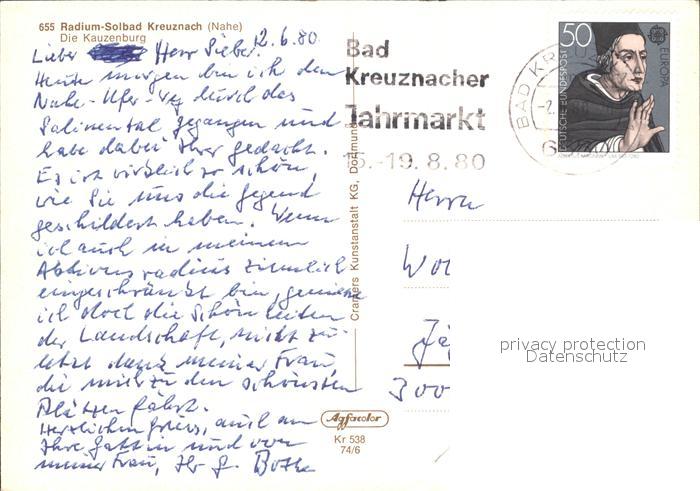 655 Radium-Solbad Kreuznach (Nahe)
Die Kauzenburg
12.6.80
Lieber Herr Sieber
Heute morgen bin ich den
Nahe-Ufer-Weg durch das
Salinental gegangen und
habe dabei Ihrer gedacht.
Es ist wirklich so schön,
wie Sie uns die Gegend
geschildert haben. Wenn
ich auch in meinem
Aktionsradius ziemlich
eingeschränkt bin, geniesse
ich doch die Schönheiten
der Landschaft, nicht zu-
letzt dank meiner Frau,
die mich zu den schönsten
Plätzen fährt.
Herzlichen Gruss, auch an
Ihre Gattin und von
meiner Frau, Ihr G. Bothe
Cramers Kunstanstalt KG, Dortmund
Agfacolor
Kr 538
74/6
Bad
Kreuznacher
Jahrmarkt
15.-19.8.80
BAD KR
50
DEUTSCHE BUNDESPOST
EUROPA
Herrn
Wo
Jä
300
privacy protection
Datenschutz